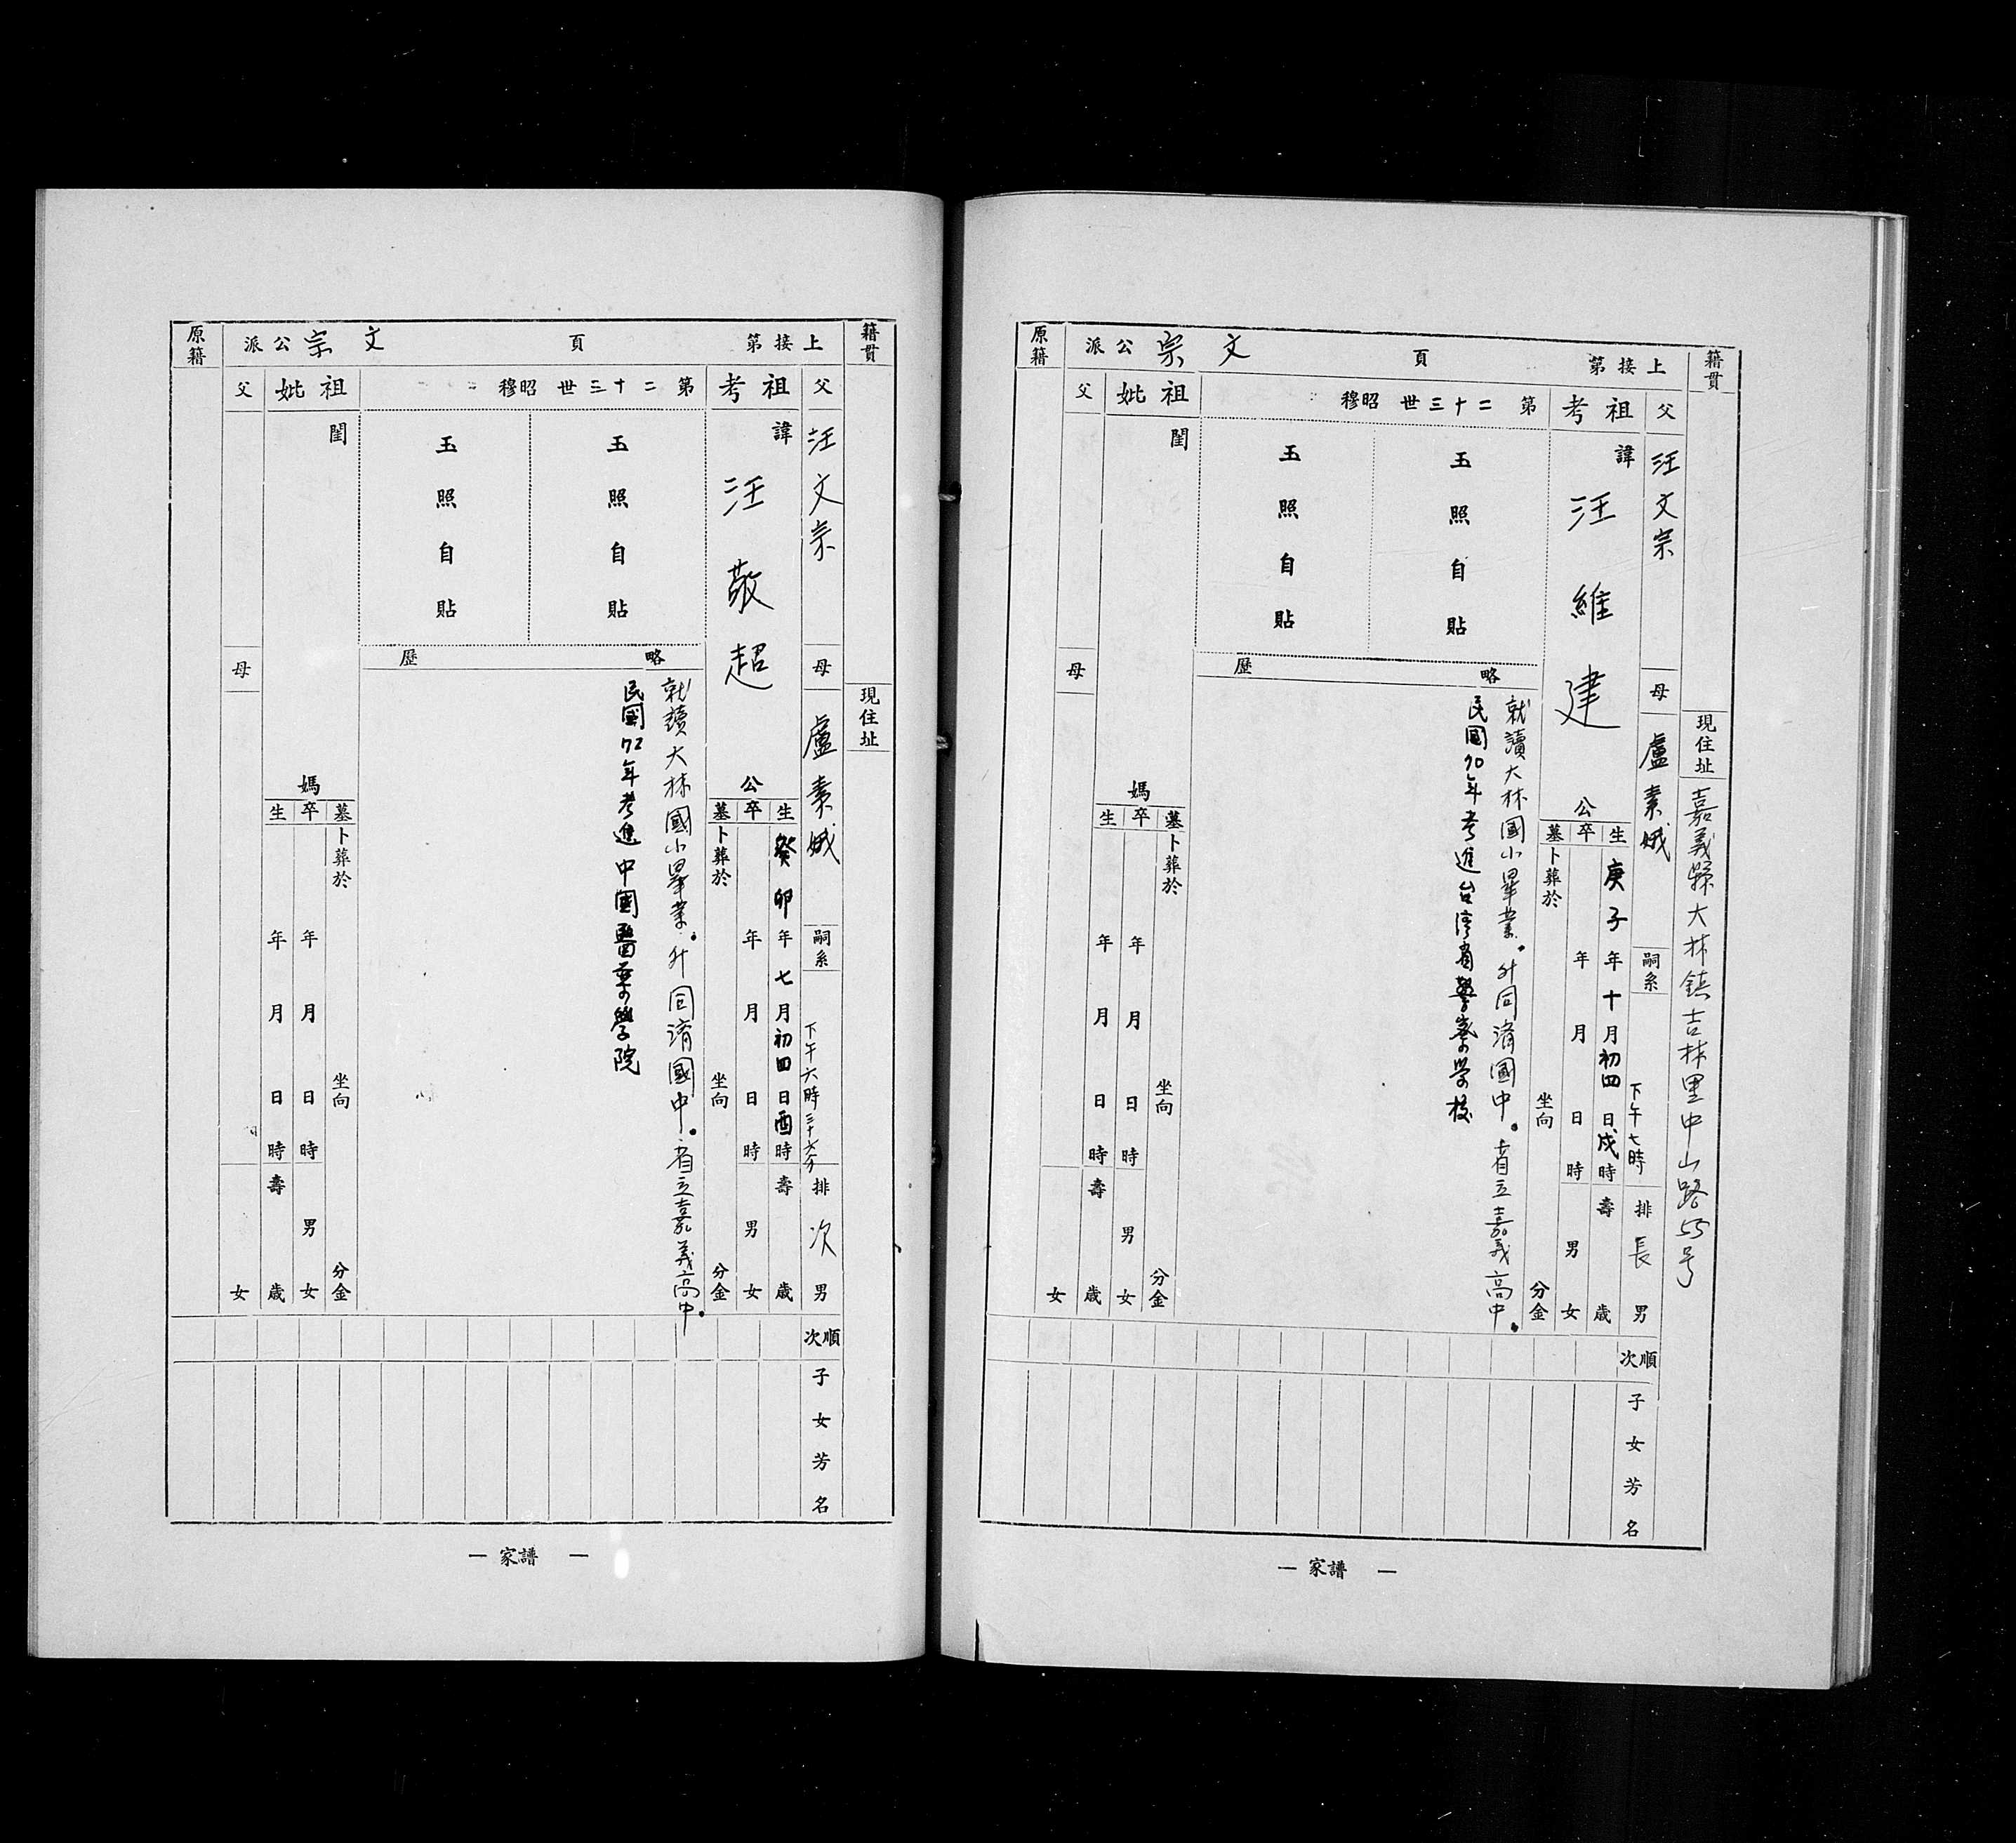 籍貫
現住址 嘉義縣大林鎮吉林里中山路55号
上接第 頁 文宗公派
父 汪文宗
母 盧素娥
嗣系
下午七時
排 長 男
祖考
諱 汪維建 公
生 庚子年十月初四日戌時 壽 歲
卒 年 月 日 時 男 女
墓 卜葬於 坐向 分金
第二十三世 昭穆
玉照自貼
玉照自貼
略歷
就讀大林國小畢業.升同濟國中.省立嘉義高中.
民國70年考進台湾省警察学校
祖妣
閨 媽
墓 卜葬於 坐向 分金
卒 年 月 日 時 男 女
生 年 月 日 時 壽 歲
父
母
女
原籍
順次
子女芳名
一 家譜 一
籍貫
現住址
上接第 頁 文宗公派
父 汪文宗
母 盧素娥
嗣系
下午六時三十六分
排 次 男
祖考
諱 汪敬超 公
生 癸卯年七月初四日酉時 壽 歲
卒 年 月 日 時 男 女
墓 卜葬於 坐向 分金
第二十三世 昭穆
玉照自貼
玉照自貼
略歷
就讀大林國小畢業.升同濟國中.省立嘉義高中.
民國72年考進中國醫葯學院
祖妣
閨 媽
墓 卜葬於 坐向 分金
卒 年 月 日 時 男 女
生 年 月 日 時 壽 歲
父
母
女
原籍
順次
子女芳名
一 家譜 一